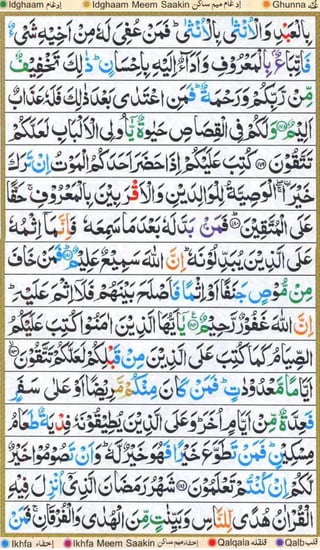 Idghaam ادغام Idghaam Meem Saakin ادغام میم ساکن Ghunna غنه
بِالْعَبْدِ وَالْاُنْثٰى بِالْاُنْثٰىؕ فَمَنْ عُفِيَ لَهٗ مِنْ اَخِيْهِ شَيْءٌ
فَاتِّبَاعٌۢ بِالْمَعْرُوْفِ وَاَدَآءٌ اِلَيْهِ بِاِحْسَانٍؕ ذٰلِكَ تَخْفِيْفٌ
مِّنْ رَّبِّكُمْ وَرَحْمَةٌؕ فَمَنِ اعْتَدٰى بَعْدَ ذٰلِكَ فَلَهٗ عَذَابٌ
اَلِيْمٌ ۝۱۷۸ وَلَكُمْ فِي الْقِصَاصِ حَيٰوةٌ يّٰۤاُولِي الْاَلْبَابِ لَعَلَّكُمْ
تَتَّقُوْنَ ۝۱۷۹ كُتِبَ عَلَيْكُمْ اِذَا حَضَرَ اَحَدَكُمُ الْمَوْتُ اِنْ تَرَكَ
خَيْرَاۖۚ ۨالْوَصِيَّةُ لِلْوَالِدَيْنِ وَالْاَقْرَبِيْنَ بِالْمَعْرُوْفِۚ حَقًّا
عَلَى الْمُتَّقِيْنَ ۝۱۸۰ فَمَنْۢ بَدَّلَهٗ بَعْدَمَا سَمِعَهٗ فَاِنَّمَاۤ اِثْمُهٗ
عَلَى الَّذِيْنَ يُبَدِّلُوْنَهٗؕ اِنَّ اللّٰهَ سَمِيْعٌ عَلِيْمٌ ۝۱۸۱ فَمَنْ خَافَ
مِنْ مُّوْصٍ جَنَفًا اَوْ اِثْمًا فَاَصْلَحَ بَيْنَهُمْ فَلَاۤ اِثْمَ عَلَيْهِؕ
اِنَّ اللّٰهَ غَفُوْرٌ رَّحِيْمٌ ۝۱۸۲ يٰۤاَيُّهَا الَّذِيْنَ اٰمَنُوْا كُتِبَ عَلَيْكُمُ
الصِّيَامُ كَمَا كُتِبَ عَلَى الَّذِيْنَ مِنْ قَبْلِكُمْ لَعَلَّكُمْ تَتَّقُوْنَ ۝۱۸۳
اَيَّامًا مَّعْدُوْدٰتٍؕ فَمَنْ كَانَ مِنْكُمْ مَّرِيْضًا اَوْ عَلٰى سَفَرٍ
فَعِدَّةٌ مِّنْ اَيَّامٍ اُخَرَؕ وَعَلَى الَّذِيْنَ يُطِيْقُوْنَهٗ فِدْيَةٌ طَعَامُ
مِسْكِيْنٍؕ فَمَنْ تَطَوَّعَ خَيْرًا فَهُوَ خَيْرٌ لَّهٗؕ وَاَنْ تَصُوْمُوْا خَيْرٌ
لَّكُمْ اِنْ كُنْتُمْ تَعْلَمُوْنَ ۝۱۸۴ شَهْرُ رَمَضَانَ الَّذِيْۤ اُنْزِلَ فِيْهِ
الْقُرْاٰنُ هُدًى لِّلنَّاسِ وَبَيِّنٰتٍ مِّنَ الْهُدٰى وَالْفُرْقَانِۚ فَمَنْ
Ikhfa اخفاء Ikhfa Meem Saakin اخفاء میم ساکن Qalqala قلقله Qalb قلب